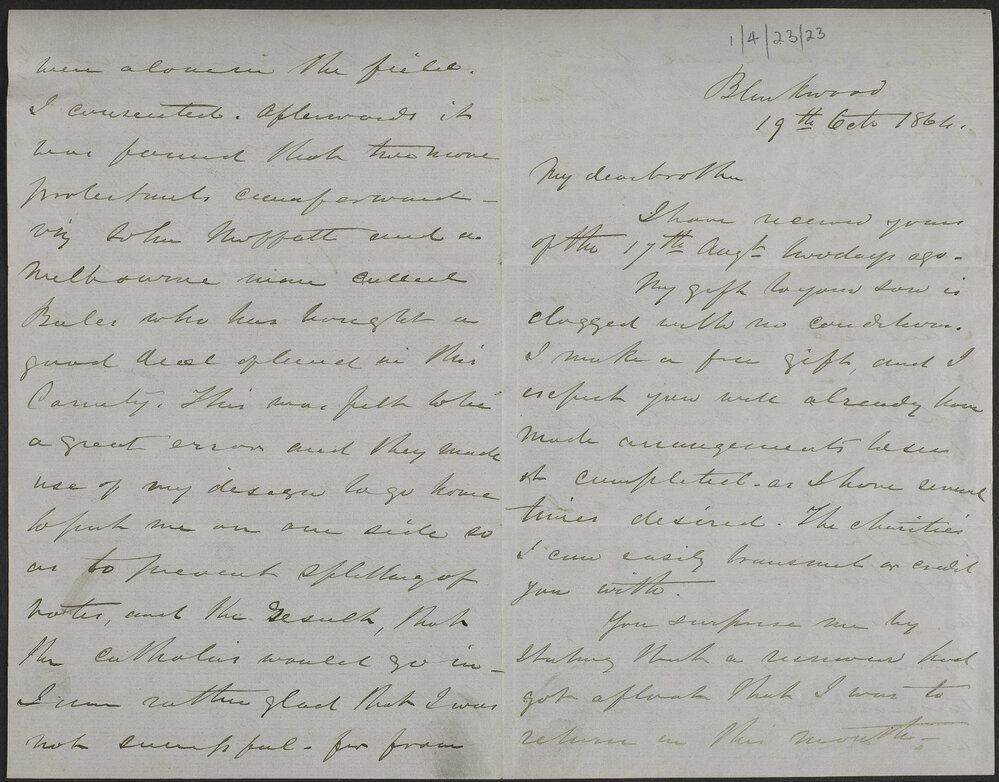 were alone in the field.
I consented. Afterwards it
was found that two more
protestants came forward -
viz John Moffatt and a
Melbourne man called
Bales who has bought a
good deal of land in this
County. This was felt to be
a great error and they made
use of my design to go home
to put me on one side so
as to prevent splitting of
votes, and the result, that
the catholics would go in -
I am rather glad that I was
not successful - for from
1/4/23/23
Blackwood
19th Octr 1864.
My dear brother
I have received yours
of the 17th Augt two days ago -
My gift to your son is
clogged with no condition.
I make a free gift, and I
expect you will already have
made arrangements to see
it completed - as I have several
times desired. The charities
I can easily transmit or credit
you with.
You surprise me by
stating that a rumour had
got afloat that I was to
return in this month -